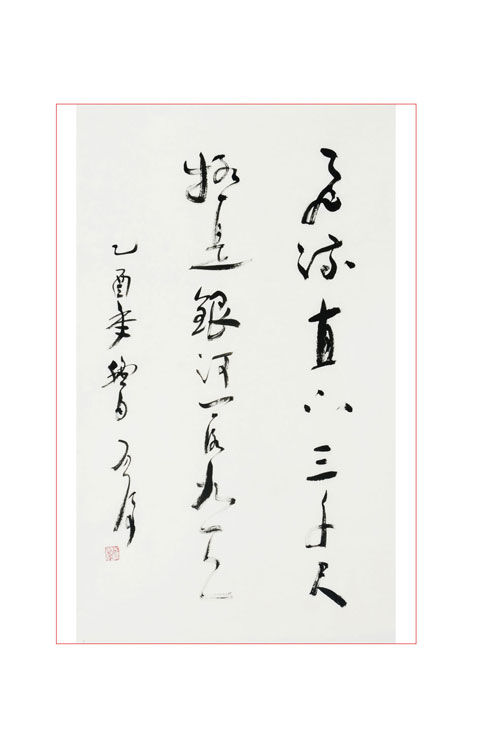 飛流直下三千尺
疑是銀河落九天
乙酉年